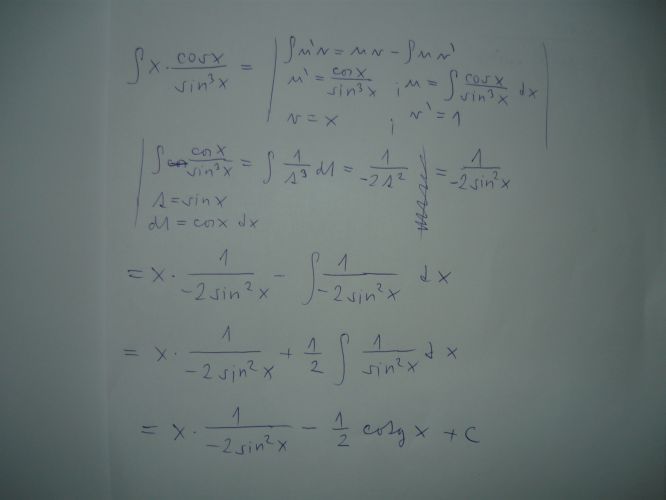 ∫ x · cosx/sin³x = | ∫u'v = uv - ∫uv'
u' = cosx/sin³x ; u = ∫ cosx/sin³x dx
v = x ; v' = 1 |
| ∫ cosx/sin³x = ∫ 1/s³ ds = 1/-2s² = 1/-2sin²x
s = sinx
ds = cosx dx
= x · 1/-2sin²x - ∫ 1/-2sin²x dx
= x · 1/-2sin²x + 1/2 ∫ 1/sin²x dx
= x · 1/-2sin²x - 1/2 cotg x + c